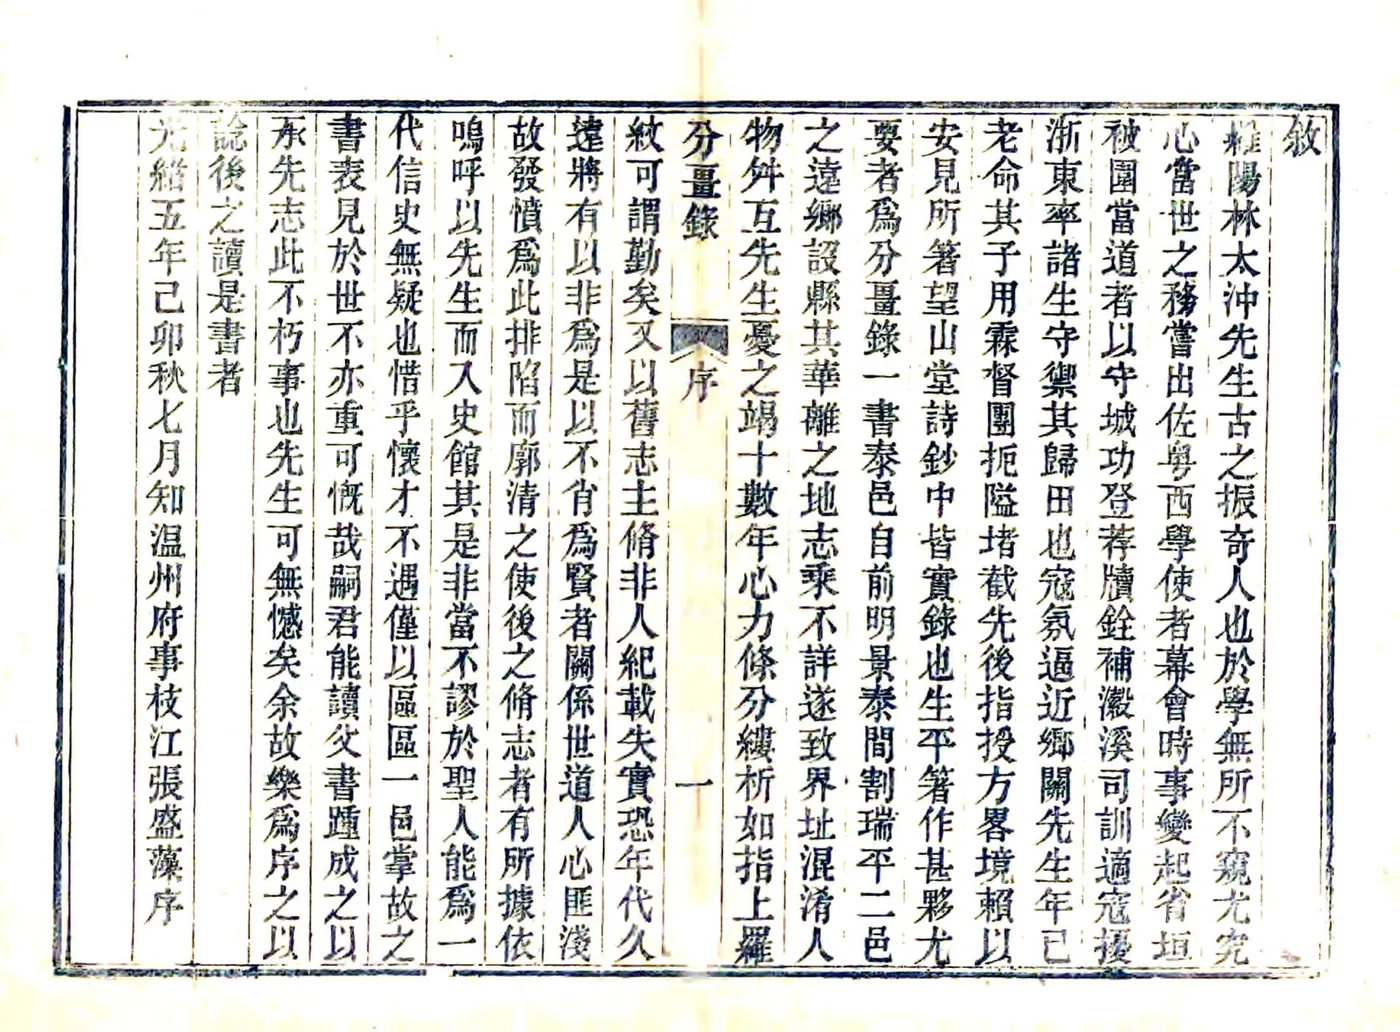 敘
羅陽林太沖先生古之振奇人也於學無所不窺尤究
心當世之務嘗出佐粤西學使者幕會時事變起省垣
被圍當道者以守城功登荐牘銓補瀫溪司訓適寇擾
浙東率諸生守禦其歸田也寇氛逼近鄉關先生年已
老命其子用霖督團扼隘堵截先後指授方畧境賴以
安見所著望山堂詩鈔中皆實錄也生平著作甚夥尤
要者爲分疆錄一書泰邑自前明景泰間割瑞平二邑
之遠鄉設縣其華離之地志乘不詳遂致界址混淆人
物舛互先生憂之竭十數年心力條分縷析如指上羅
分疆錄
序
一
紋可謂勤矣又以舊志主脩非人紀載失實恐年代久
遠將有以非爲是以不肖爲賢者關係世道人心匪淺
故發憤爲此排陷而廓清之使後之脩志者有所據依
嗚呼以先生而入史館其是非當不謬於聖人能爲一
代信史無疑也惜乎懷才不遇僅以區區一邑掌故之
書表見於世不亦重可慨哉嗣君能讀父書踵成之以
承先志此不朽事也先生可無憾矣余故樂爲序之以
諗後之讀是書者
光緒五年己卯秋七月知温州府事枝江張盛藻序